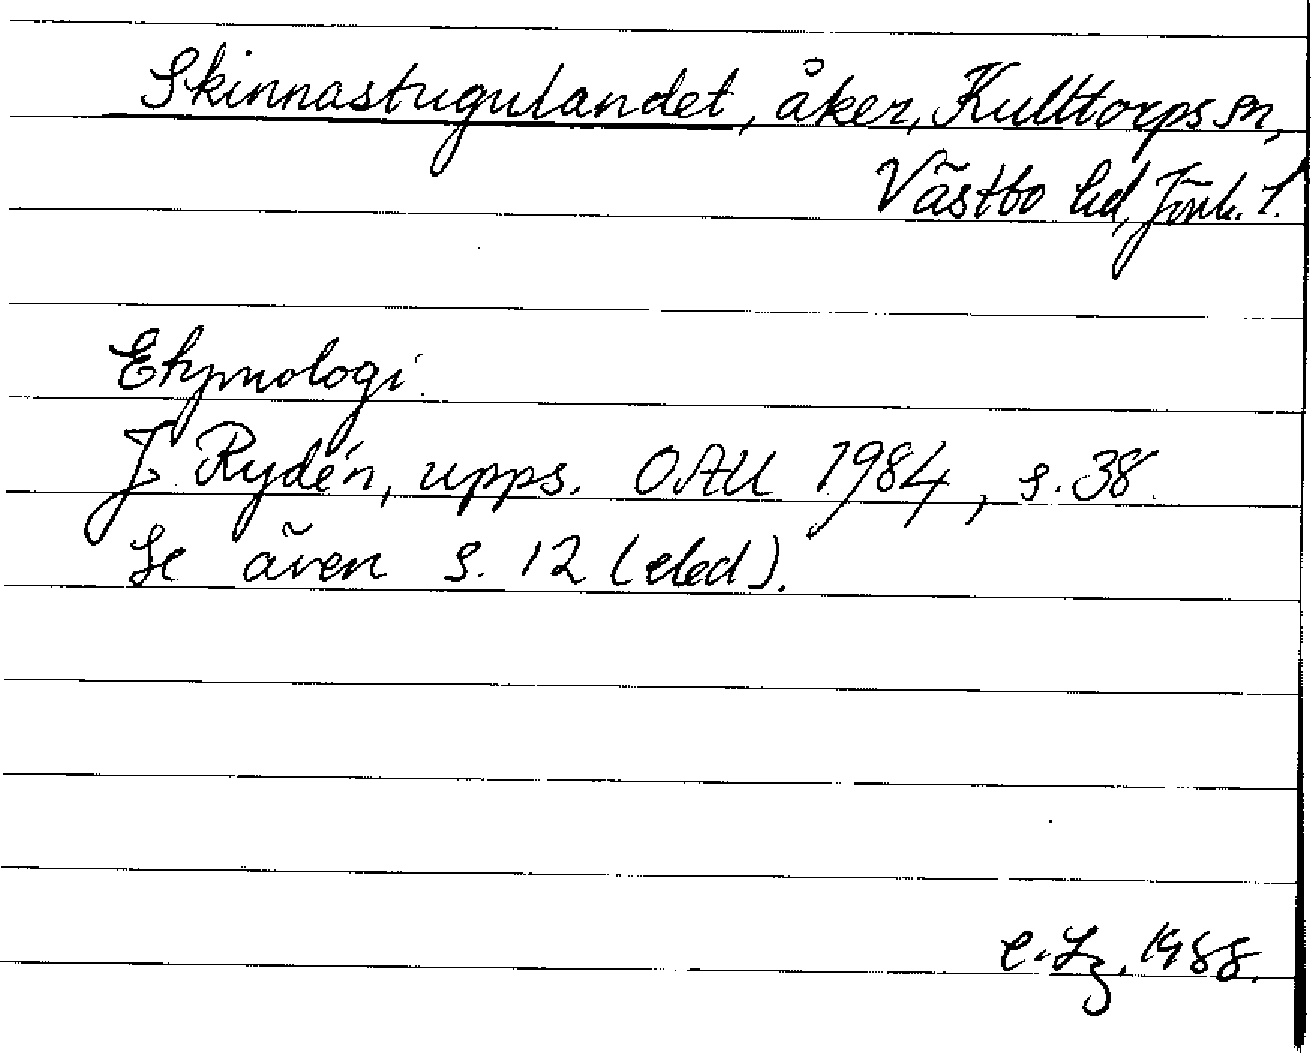 Skinnastugulandet, åker, Kulltorps sn,
Västbo hd, Jönk. l.
Etymologi.
J. Rydén, upps. OAU 1984, s. 38.
Se även s. 12 (eled).
C. Lz, 1988.